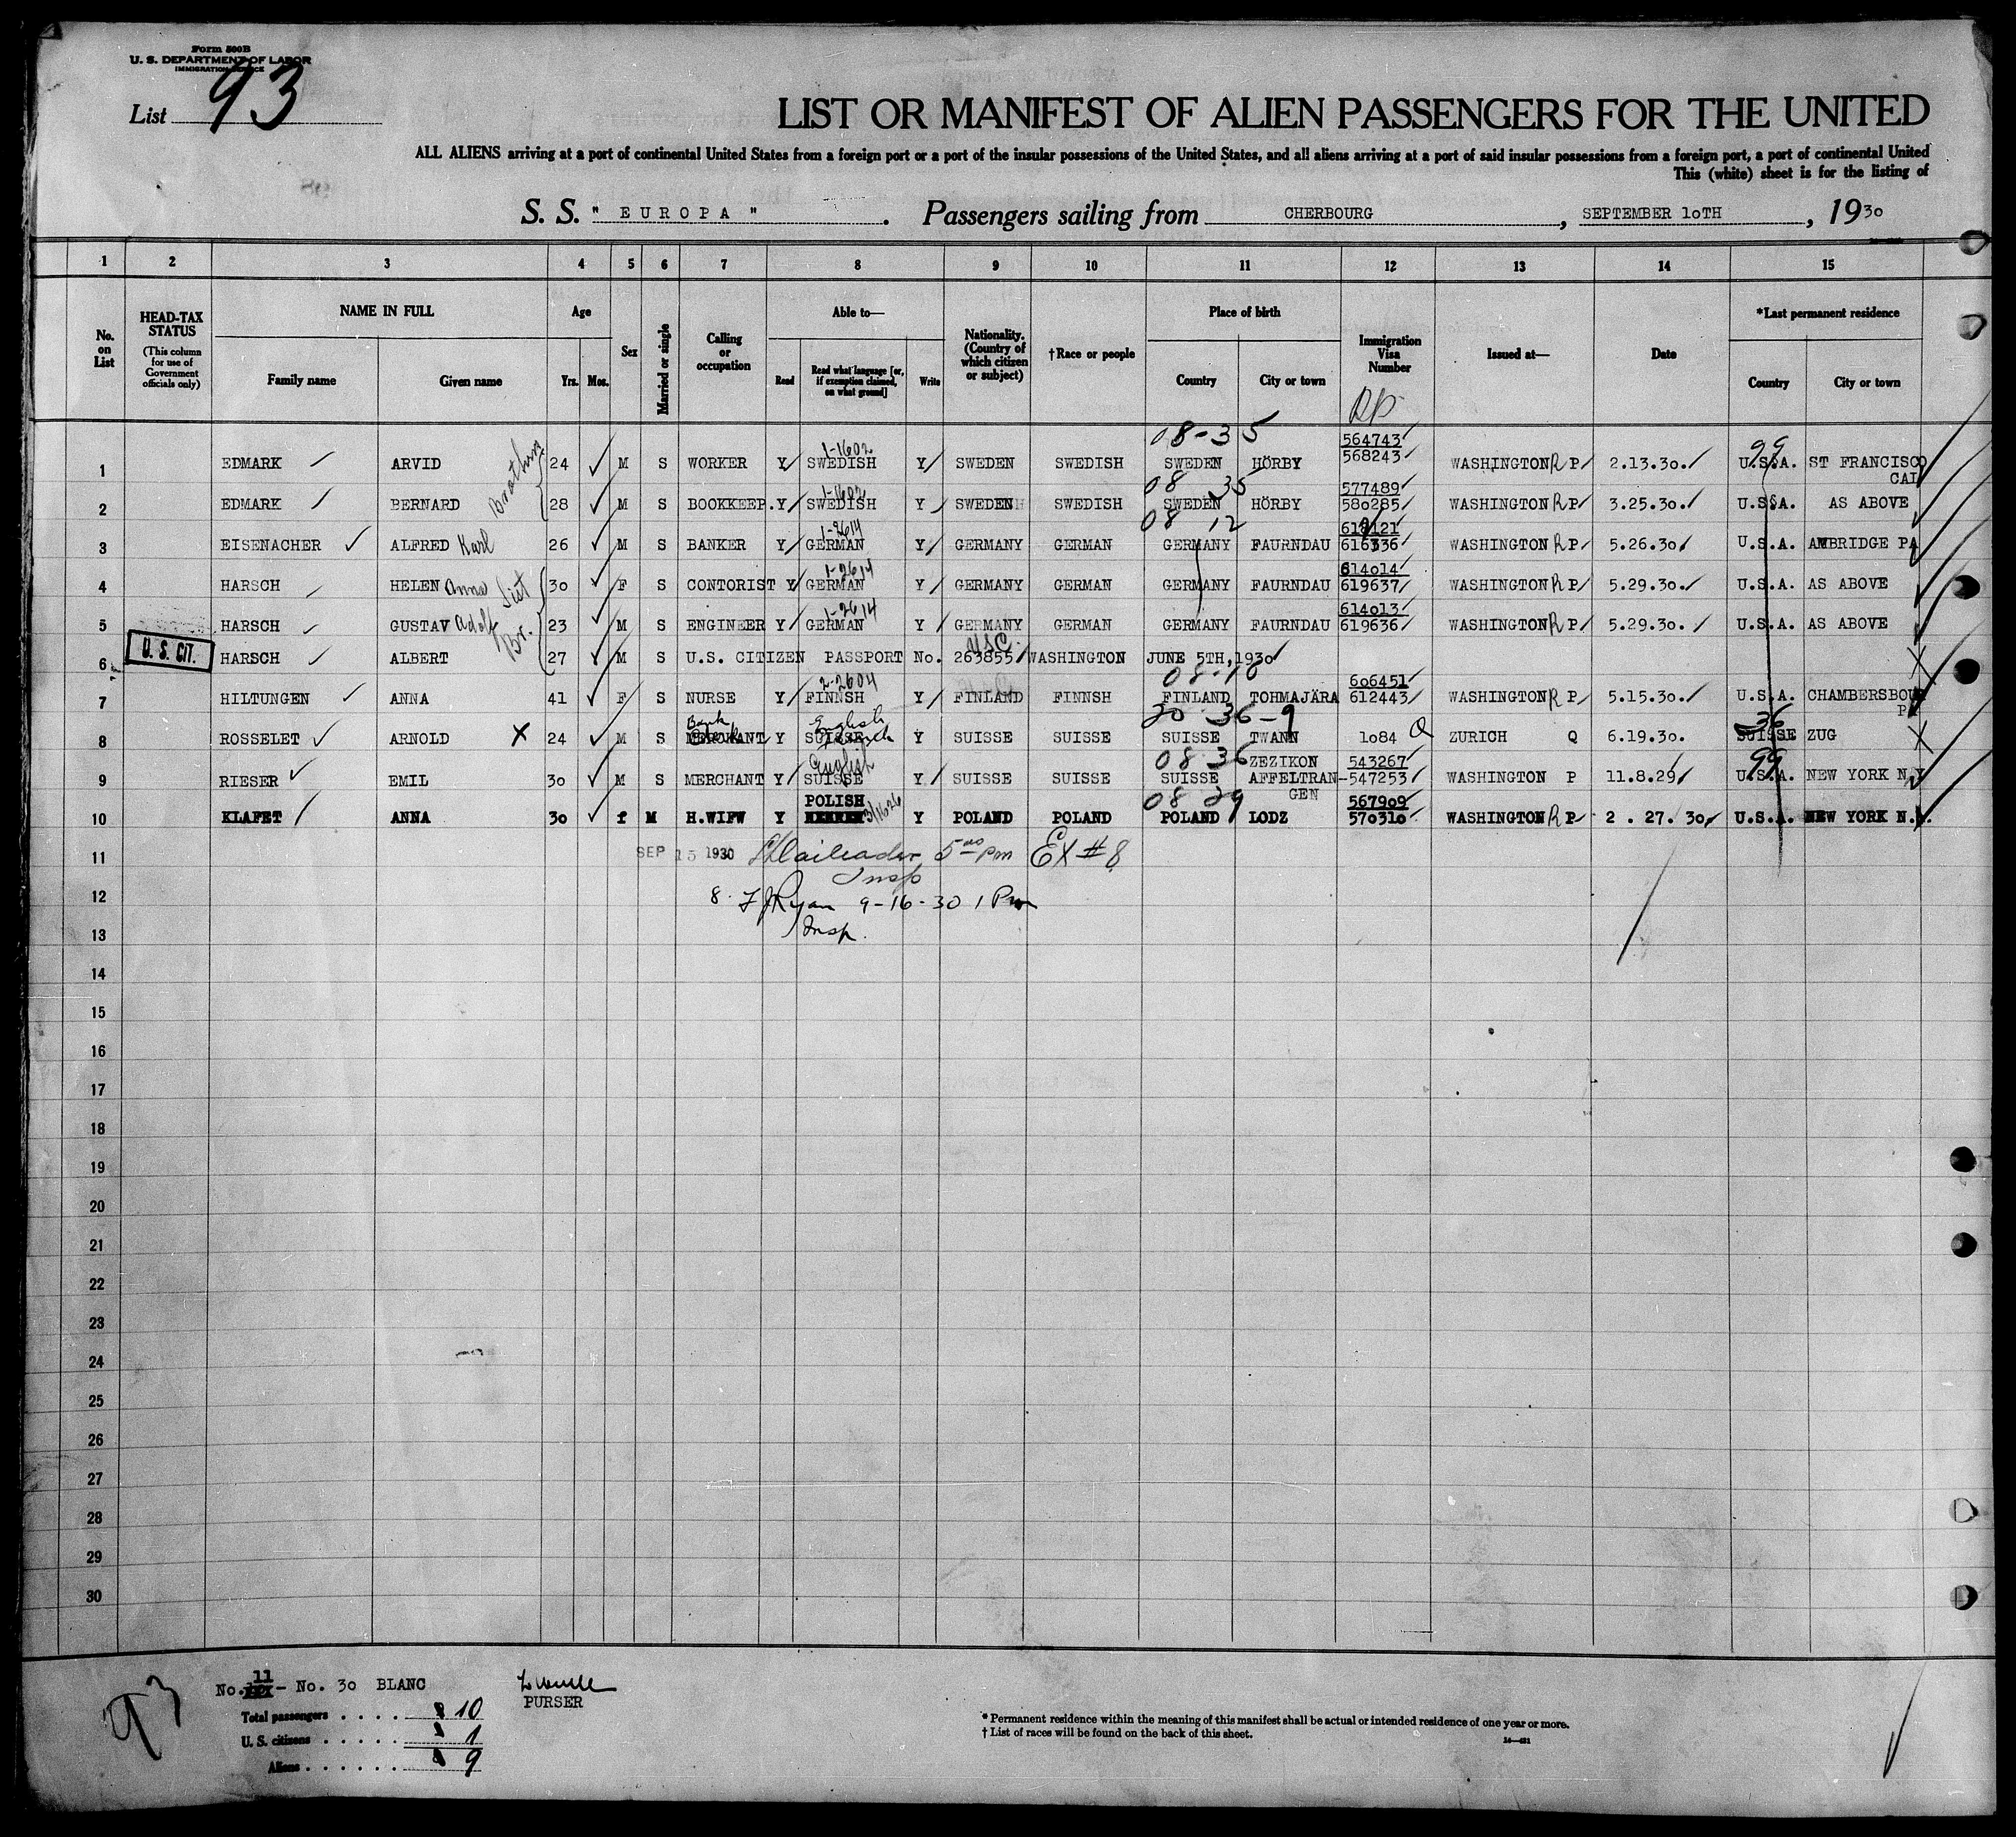 Form 500B
U. S. DEPARTMENT OF LABOR
IMMIGRATION SERVICE
List 93
LIST OR MANIFEST OF ALIEN PASSENGERS FOR THE UNITED
ALL ALIENS arriving at a port of continental United States from a foreign port or a port of the insular possessions of the United States, and all aliens arriving at a port of said insular possessions from a foreign port, a port of continental United
This (white) sheet is for the listing of
S. S. " EUROPA " . Passengers sailing from CHERBOURG , SEPTEMBER 10TH , 1930
1 2 3 4 5 6 7 8 9 10 11 12 13 14 15
No. on List
HEAD-TAX STATUS (This column for use of Government officials only)
NAME IN FULL Family name Given name
Age Yrs. Mos.
Sex
Married or single
Calling or occupation
Able to— Read Read what language [or, if exemption claimed, on what ground] Write
Nationality. (Country of which citizen or subject)
†Race or people
Place of birth Country City or town
Immigration Visa Number
RP
Issued at—
Date
*Last permanent residence Country City or town
1-1602 08-35 564743 99
1 EDMARK ARVID Brothers 24 M S WORKER Y SWEDISH Y SWEDEN SWEDISH SWEDEN HÖRBY 568243 WASHINGTON R P 2.13.30. U.S.A. ST FRANCISCO CAL
1-1602 08 35 577489
2 EDMARK BERNARD 28 M S BOOKKEEP. Y SWEDISH Y SWEDEN SWEDISH SWEDEN HÖRBY 580285 WASHINGTON R P 3.25.30. U.S.A. AS ABOVE
1-2614 08 12 618121
3 EISENACHER ALFRED Karl 26 M S BANKER Y GERMAN Y GERMANY GERMAN GERMANY FAURNDAU 616336 WASHINGTON R P 5.26.30. U.S.A. AMBRIDGE PA
1-2614 614014
4 HARSCH HELEN Anna Sist 30 F S CONTORIST Y GERMAN Y GERMANY GERMAN GERMANY FAURNDAU 619637 WASHINGTON R P 5.29.30. U.S.A. AS ABOVE
1-2614 614013
5 HARSCH GUSTAV Adolf Br. 23 M S ENGINEER Y GERMAN Y GERMANY GERMAN GERMANY FAURNDAU 619636 WASHINGTON R P 5.29.30. U.S.A. AS ABOVE
USC
6 U. S. CIT. HARSCH ALBERT 27 M S U.S. CITIZEN PASSPORT No. 263855 WASHINGTON JUNE 5TH, 1930
2-2604 08-10 606451
7 HILTUNGEN ANNA 41 F S NURSE Y FINNSH Y FINLAND FINNSH FINLAND TOHMAJÄRA 612443 WASHINGTON R P 5.15.30. U.S.A. CHAMBERSBOUR PA
Bank Clerk English French 20 36-9 36
8 ROSSELET ARNOLD X 24 M S MERCHANT Y SUISSE Y SUISSE SUISSE SUISSE TWANN 1084 Q ZURICH Q 6.19.30. SUISSE ZUG
English 08 36 ZEZIKON 543267 99
9 RIESER EMIL 30 M S MERCHANT Y SUISSE Y SUISSE SUISSE SUISSE AFFELTRAN-GEN 547253 WASHINGTON P 11.8.29 U.S.A. NEW YORK N.Y
POLISH 3/1626 08 29 567909
10 KLAFET ANNA 30 f M H.WIFW Y Y POLAND POLAND POLAND LODZ 570310 WASHINGTON R P 2.27.30. U.S.A. NEW YORK N.Y.
11 SEP 15 1930 5 00 pm Ex # 8
Insp
12 8. F J Ryan 9-16-30 1 Pm
13 Insp.
14
15
16
17
18
19
20
21
22
23
24
25
26
27
28
29
30
93
No. 11 - No. 30 BLANC
PURSER
Total passengers . . . . 10
U. S. citizens . . . . . 1
Aliens . . . . . . 9
* Permanent residence within the meaning of this manifest shall be actual or intended residence of one year or more.
† List of races will be found on the back of this sheet.